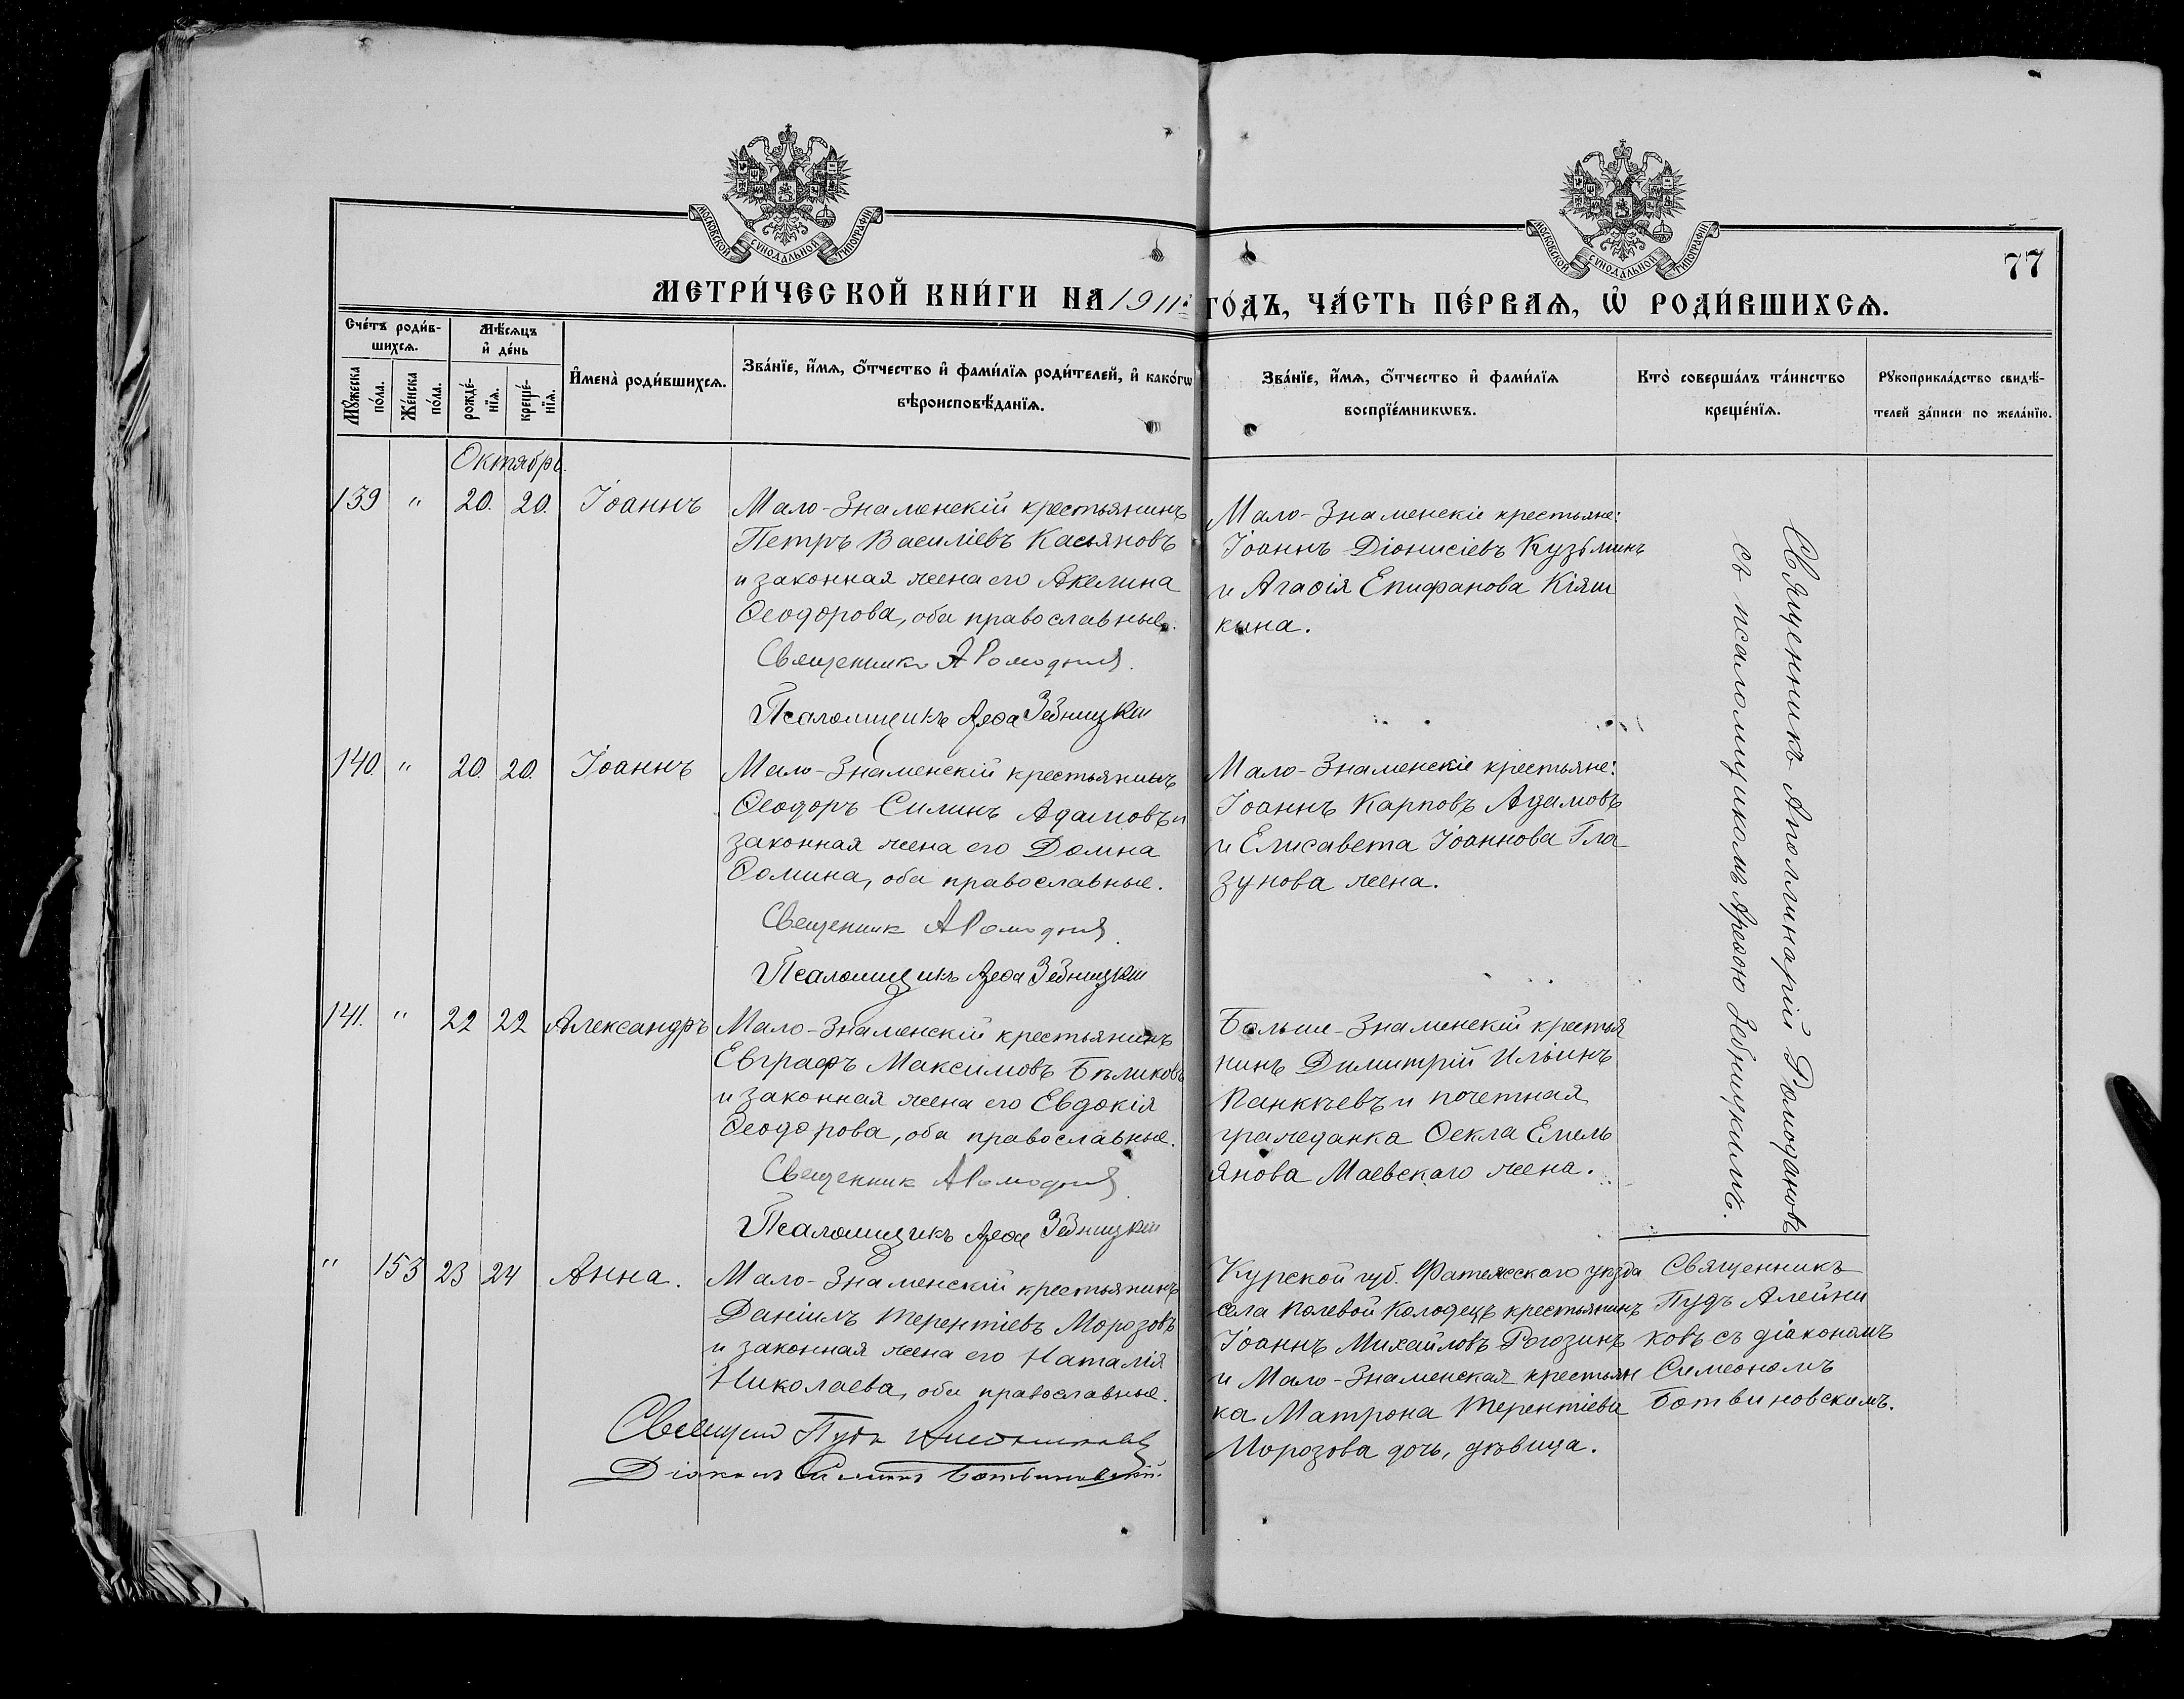 МОСКОВСКОЙ СУНОДАЛЬНОЙ ТИПОГРАФІИ
МОСКОВСКОЙ СУНОДАЛЬНОЙ ТИПОГРАФІИ
77
МЕТРИ́ЧЕСКОЙ КНИ́ГИ НА 1911й ГО́ДЪ, ЧА́СТЬ ПЕ́РВАѦ, Ѡ҆ РОДИ́ВШИХСѦ.
Сче́тъ роди́в-
шихсѧ.
Мꙋ́жеска
по́ла.
Же́нска
по́ла.
Мѣ́сѧцъ
и҆ де́нь
рожде́-
нїѧ.
креще́-
нїѧ.
И҆мена̀ роди́вшихсѧ.
Зва́нїе, и҆́мѧ, ѻ҆́тчество и҆ фами́лїѧ роди́телей, и҆ како́гѡ
вѣроисповѣ́данїѧ.
Зва́нїе, и҆́мѧ, ѻ҆́тчество и҆ фами́лїѧ
воспрїе́мникѡвъ.
Кто̀ соверша́лъ та́инство
креще́нїѧ.
Рꙋкоприкла́дство свидѣ́-
телей за́писи по жела́нїю.
Октябрь.
139 " 20. 20. Іоаннъ
Мало-Знаменскій крестьянинъ
Петръ Василіевъ Касьяновъ
и законная жена его Акелина
Ѳеодорова, оба православные.
Священникъ А Ромоданов
Псаломщикъ Арефа Зебницкій
Мало-Знаменскіе крестьяне:
Іоаннъ Діонисіевъ Кузьминъ
и Агаѳія Епифанова Кіяш
кина.
140. " 20. 20. Іоаннъ
Мало-Знаменскій крестьянинъ
Ѳеодоръ Силинъ Адамовъ и
законная жена его Домна
Ѳомина, оба православные.
Священник А Ромоданов
Псаломщикъ Арефа Зебницкій
Мало-Знаменскіе крестьяне:
Іоаннъ Карповъ Адамовъ
и Елисавета Іоаннова Гла
зунова жена.
141. " 22 22 Александръ
Мало-Знаменскій крестьянинъ
Евграфъ Максимовъ Бѣликовъ
и законная жена его Евдокія
Ѳеодорова, оба православные.
Священник А Ромоданов
Псаломщикъ Арефа Зебницкій
Больше-Знаменскій крестья
нинъ Димитрій Ильинъ
Панкѣевъ и почетная
гражданка Ѳекла Емель
янова Маевскаго жена.
Священникъ Аполлинарій Ромодановъ
съ псаломщикомъ Арефою Зебницкимъ.
" 153 23 24 Анна.
Мало-Знаменскій крестьянинъ
Даніилъ Терентіевъ Морозовъ
и законная жена его Наталія
Николаева, оба православные.
Священ Пудъ Алейниковъ
Діаконъ Симеонъ Ботвиновскій.
Курской губ. Фатежскаго уѣзда
села Полевой Колодецъ крестьянинъ
Іоаннъ Михайловъ Рогозинъ
и Мало-Знаменская крестьян
ка Матрона Терентіева
Морозова дочь, дѣвица.
Священникъ
Пудъ Алейни
ковъ съ діакономъ
Симеономъ
Ботвиновскимъ.